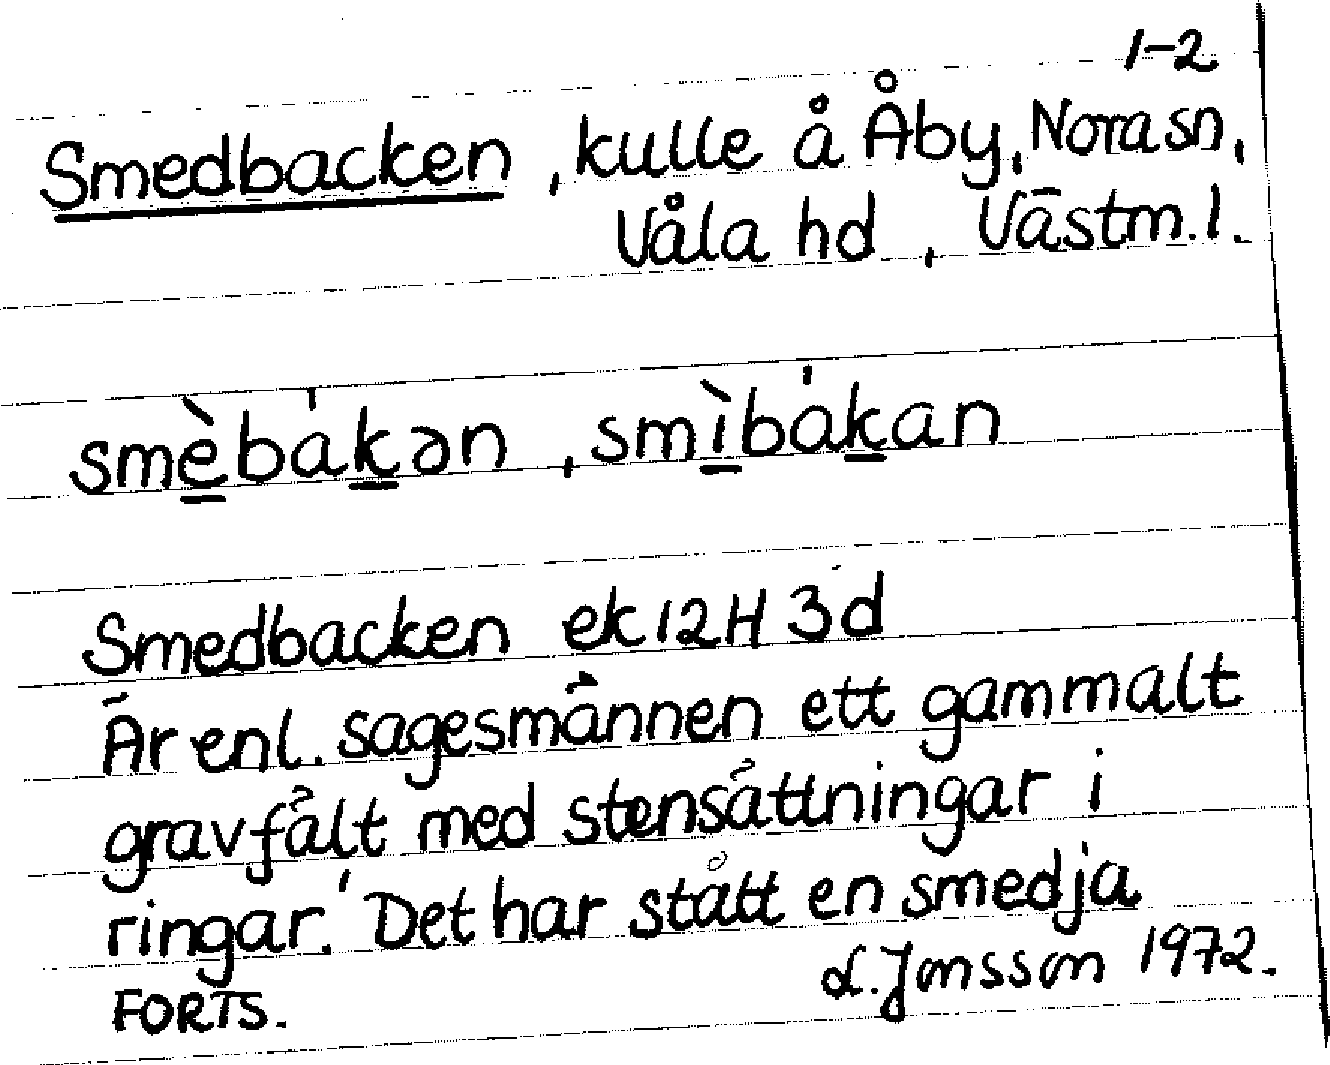 1-2
Smedbacken, kulle å Åby, Nora sn,
Våla hd, Västm. l.
smèbákən, smìbákan
Smedbacken ek 12H 3d
Är enl. sagesmännen ett gammalt
gravfält med stensättningar i
ringar.' Det har stått en smedja
FORTS.
L. Jonsson 1972.